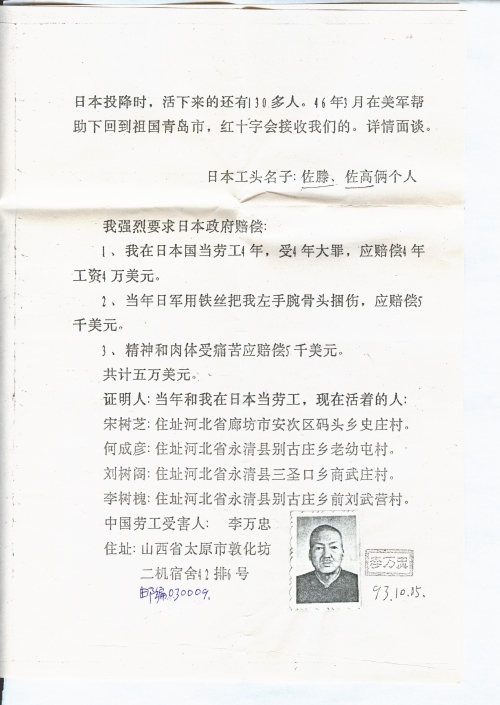 日本投降时，活下来的还有130多人。46年3月在美军帮
助下回到祖国青岛市，红十字会接收我们的。详情面谈。
日本工头名子：佐滕、佐高俩个人
我强烈要求日本政府赔偿：
1、我在日本国当劳工4年，受4年大罪，应赔偿4年
工资4万美元。
2、当年日军用铁丝把我左手腕骨头捆伤，应赔偿5
千美元。
3、精神和肉体受痛苦应赔偿5千美元。
共计五万美元。
证明人：当年和我在日本当劳工，现在活着的人：
宋树芝：住址河北省廊坊市安次区码头乡史庄村。
何成彦：住址河北省永清县别古庄乡老幼屯村。
刘树阁：住址河北省永清县三圣口乡商武庄村。
李树槐：住址河北省永清县别古庄乡前刘武营村。
中国劳工受害人：李万忠
住址：山西省太原市敦化坊
二机宿舍42排4号
邮编030009.
93.10.15.